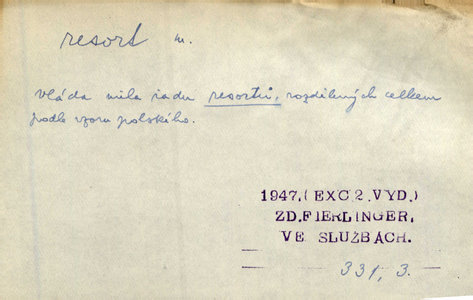 resort m.
vláda měla řadu resortů, rozdělených celkem
podle vzoru polského.
1947.(EXC 2.VYD.)
ZD.FIERLINGER,
VE SLUŽBÁCH.
331, 3.